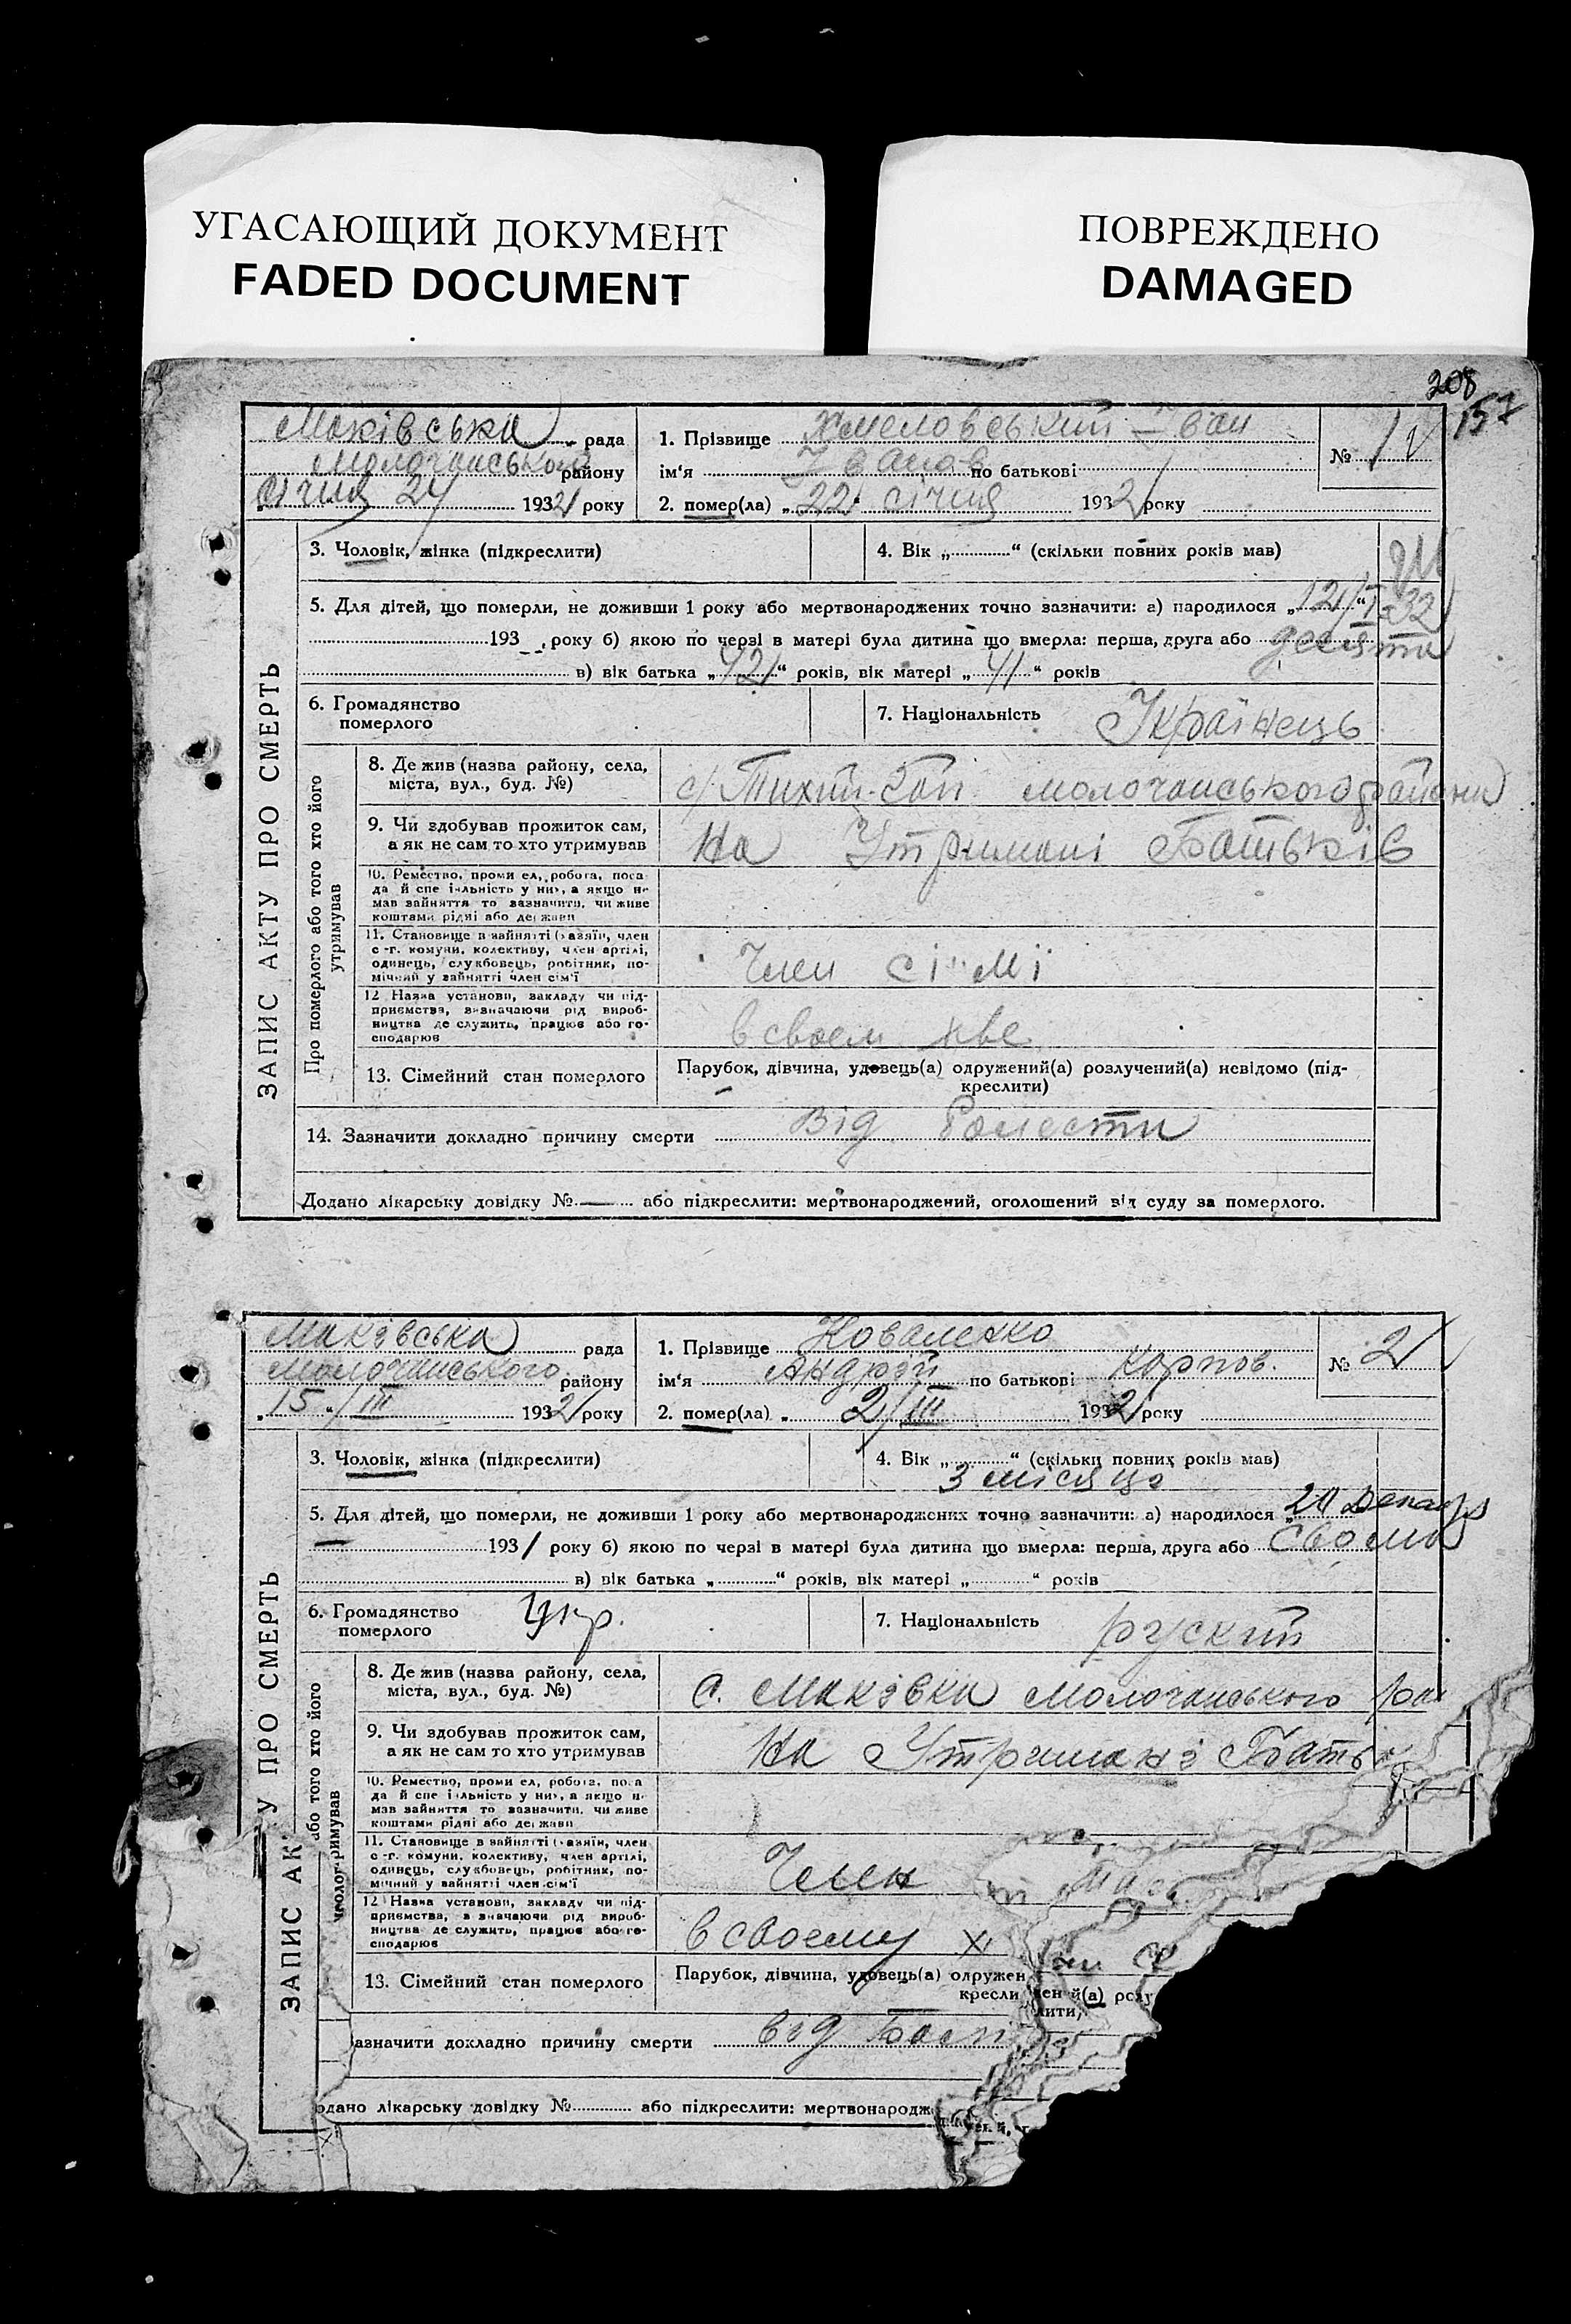 УГАСАЮЩИЙ ДОКУМЕНТ
FADED DOCUMENT
ПОВРЕЖДЕНО
DAMAGED
208
157
Маківська рада
Молочанського району
Січня 24 1932 року
1. Прізвище Хмеловський Іван
ім'я Іванов по батькові
2. помер(ла) „ 22 " січня 1932 року
№ 1
ЗАПИС АКТУ ПРО СМЕРТЬ
3. Чоловік, жінка (підкреслити)
4. Вік „ " (скільки повних років мав)
5. Для дітей, що померли, не доживши 1 року або мертвонароджених точно зазначити: а) народилося „ 12/I-32
193 , року б) якою по черзі в матері була дитина що вмерла: перша, друга або десята
в) вік батька „ 42 " років, вік матері „ 41 " років
6. Громадянство
померлого
7. Національність Українець
Про померлого або того хто його
утримував
8. Де жив (назва району, села,
міста, вул., буд. №)
с/ Тихий-Гай молочанського району
9. Чи здобував прожиток сам,
а як не сам то хто утримував
На Утримані Батьків
10. Ремество, проми ел, робота, поса
да й спе і льність у ни , а якщо не
мав зайняття то зазначити, чи живе
коштами рідні або держави
11. Становище в зайнятті (хазяїн, член
с -г. комуни, колективу, член артілі,
одинець, службовець, робітник, по-
мічний у зайнятті член сім'ї
Член сі мї
12 Назва установи, закладу чи під-
приємства, визначаючи рід вироб-
ництва де служить, працює або го-
сподарює
в своем хве
13. Сімейний стан померлого
Парубок, дівчина, удовець(а) одружений(а) розлучений(а) невідомо (під-
креслити)
14. Зазначити докладно причину смерти Від Болести
Додано лікарську довідку № — або підкреслити: мертвонароджений, оголошений від суду за померлого.
Маківська рада
Молочанського району
„ 15 " / III 1932 року
1. Прізвище Коваленко
ім'я Андрэй по батькові Карпов.
2. помер(ла) „ 2/III 1932 року
№ 2
ЗАПИС АК У ПРО СМЕРТЬ
3. Чоловік, жінка (підкреслити)
4. Вік „ " (скільки повних років мав)
3 місяця
5. Для дітей, що померли, не доживши 1 року або мертвонароджених точно зазначити: а) народилося „ 20 Декабр
— 1931 року б) якою по черзі в матері була дитина що вмерла: перша, друга або
в) вік батька „ " років, вік матері „ " років
6. Громадянство
померлого
Укр.
7. Національність руский
або того хто його
римував
8. Де жив (назва району, села,
міста, вул., буд. №)
С. Маківка Молочанського рай
9. Чи здобував прожиток сам,
а як не сам то хто утримував
На Утримані Бать
10. Ремество, проми ел, робота, поса
да й спе і льність у ни , а якщо не
мав зайняття то зазначити, чи живе
коштами рідні або держави
11. Становище в зайнятті (хазяїн, член
с -г. комуни, колективу, член артілі,
одинець, службовець, робітник, по-
мічний у зайнятті член сім'ї
Член
12 Назва установи, закладу чи під-
приємства, в значаючи рід вироб-
ництва де служить, працює або го-
сподарює
В своему х
13. Сімейний стан померлого
Парубок, дівчина, удовець(а) одружен ен й(а) розлу
кресли лити)
азначити докладно причину смерти від Болі
одано лікарську довідку № або підкреслити: мертвонародж